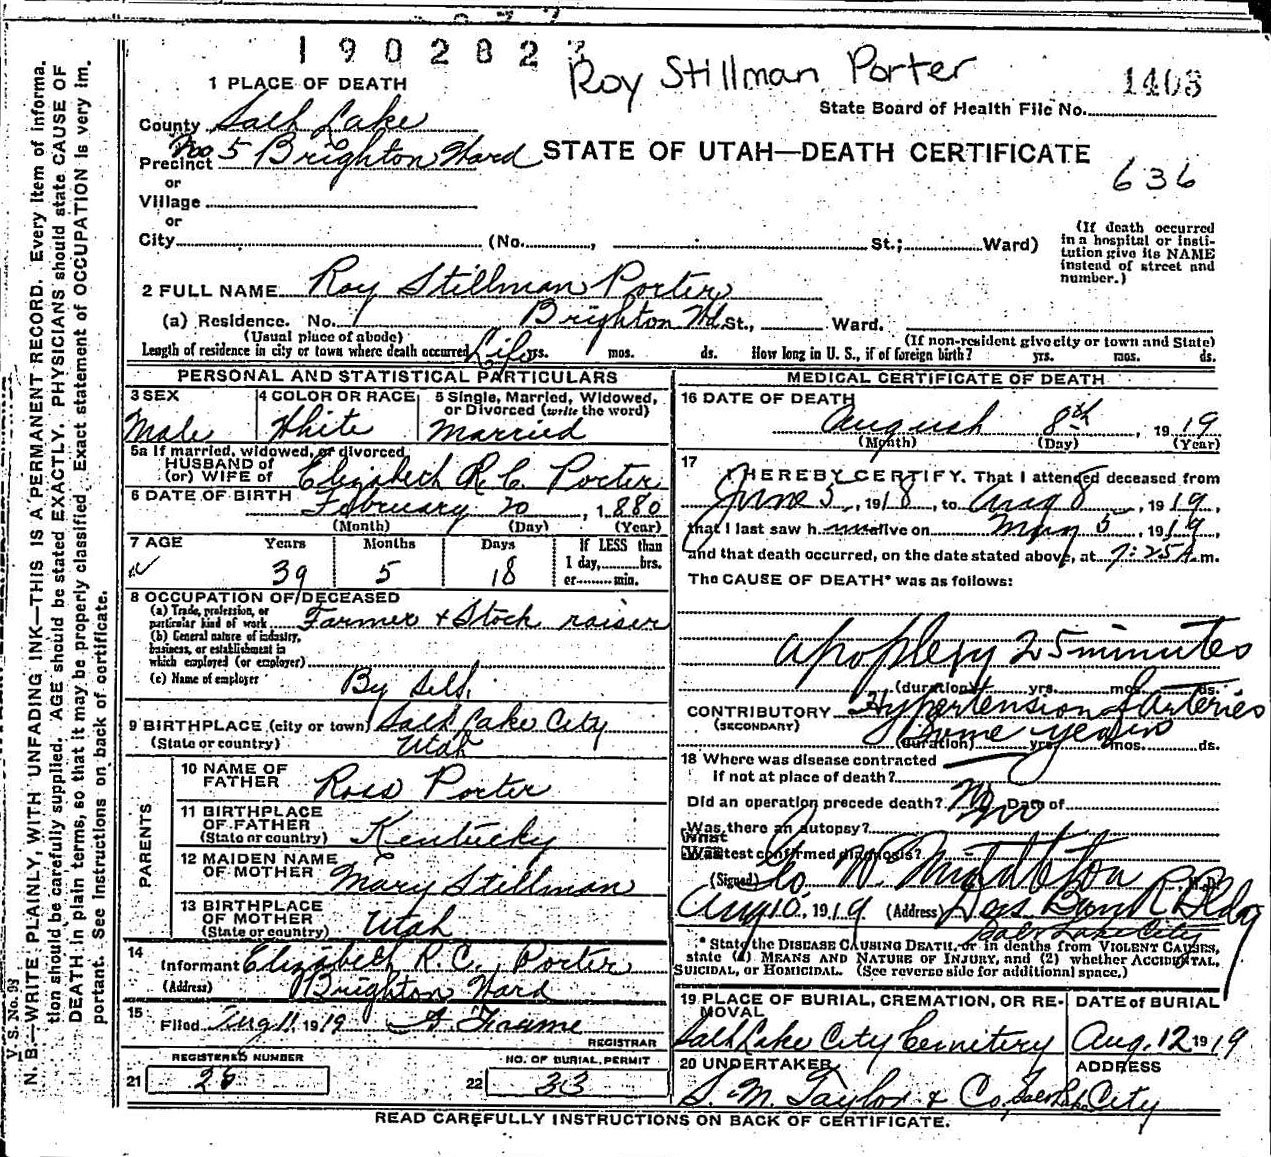 1902827
Roy Stillman Porter
1403
1 PLACE OF DEATH
State Board of Health File No.
County Salt Lake
Precinct No 5 Brighton Ward
STATE OF UTAH—DEATH CERTIFICATE
636
or
Village
or
City (No. , St.; Ward)
(If death occurred
in a hospital or insti-
tution give its NAME
instead of street and
number.)
2 FULL NAME Roy Stillman Porter
(a) Residence. No. Brighton Wd. St., Ward.
(Usual place of abode) (If non-resident give city or town and State)
Length of residence in city or town where death occurred Life yrs. mos. ds. How long in U. S., if of foreign birth? yrs. mos. ds.
PERSONAL AND STATISTICAL PARTICULARS
3 SEX 4 COLOR OR RACE 5 Single, Married, Widowed,
or Divorced (write the word)
Male White Married
5a If married, widowed, or divorced
HUSBAND of
(or) WIFE of Elizabeth R. C. Porter
6 DATE OF BIRTH February 20, 1880
(Month) (Day) (Year)
7 AGE Years Months Days If LESS than
1 day, hrs.
or min.
39 5 18
8 OCCUPATION OF DECEASED
(a) Trade, profession, or
particular kind of work Farmer & Stock raiser
(b) General nature of industry,
business, or establishment in
which employed (or employer)
(c) Name of employer By Self.
9 BIRTHPLACE (city or town) Salt Lake City
(State or country) Utah
PARENTS
10 NAME OF
FATHER Ross Porter
11 BIRTHPLACE
OF FATHER
(State or country) Kentucky
12 MAIDEN NAME
OF MOTHER Mary Stillman
13 BIRTHPLACE
OF MOTHER
(State or country) Utah
14
Informant Elizabeth R. C. Porter
(Address) Brighton Ward
15
Filed Aug 11, 1919
REGISTRAR
REGISTERED NUMBER NO. OF BURIAL PERMIT
21 22 33
MEDICAL CERTIFICATE OF DEATH
16 DATE OF DEATH
August 8th, 1919
(Month) (Day) (Year)
17
I HEREBY CERTIFY, That I attended deceased from
June 5, 1918, to Aug 8, 1919,
that I last saw him alive on May 5, 1919,
and that death occurred, on the date stated above, at 7:25 A. m.
The CAUSE OF DEATH* was as follows:
apoplexy 25 minutes
(duration) yrs. mos. ds.
CONTRIBUTORY Hypertension of Arteries
(SECONDARY)
Some years
(duration) yrs. mos. ds.
18 Where was disease contracted
if not at place of death?
Did an operation precede death? No Date of
Was there an autopsy? No
What test confirmed diagnosis?
(Signed) Geo. W. Middleton M.D.
Aug 10, 1919 (Address) Des Bank Bldg
Salt Lake City
* State the DISEASE CAUSING DEATH, or in deaths from VIOLENT CAUSES,
state (1) MEANS AND NATURE OF INJURY, and (2) whether ACCIDENTAL,
SUICIDAL, or HOMICIDAL. (See reverse side for additional space.)
19 PLACE OF BURIAL, CREMATION, OR RE-
MOVAL
DATE of BURIAL
Salt Lake City Cemitery Aug. 12 1919
20 UNDERTAKER ADDRESS
S. M. Taylor & Co., Salt Lake City
READ CAREFULLY INSTRUCTIONS ON BACK OF CERTIFICATE.
V. S. No. 98
N. B.—WRITE PLAINLY, WITH UNFADING INK—THIS IS A PERMANENT RECORD. Every item of informa-
tion should be carefully supplied. AGE should be stated EXACTLY. PHYSICIANS should state CAUSE OF
DEATH in plain terms, so that it may be properly classified. Exact statement of OCCUPATION is very im-
portant. See instructions on back of certificate.